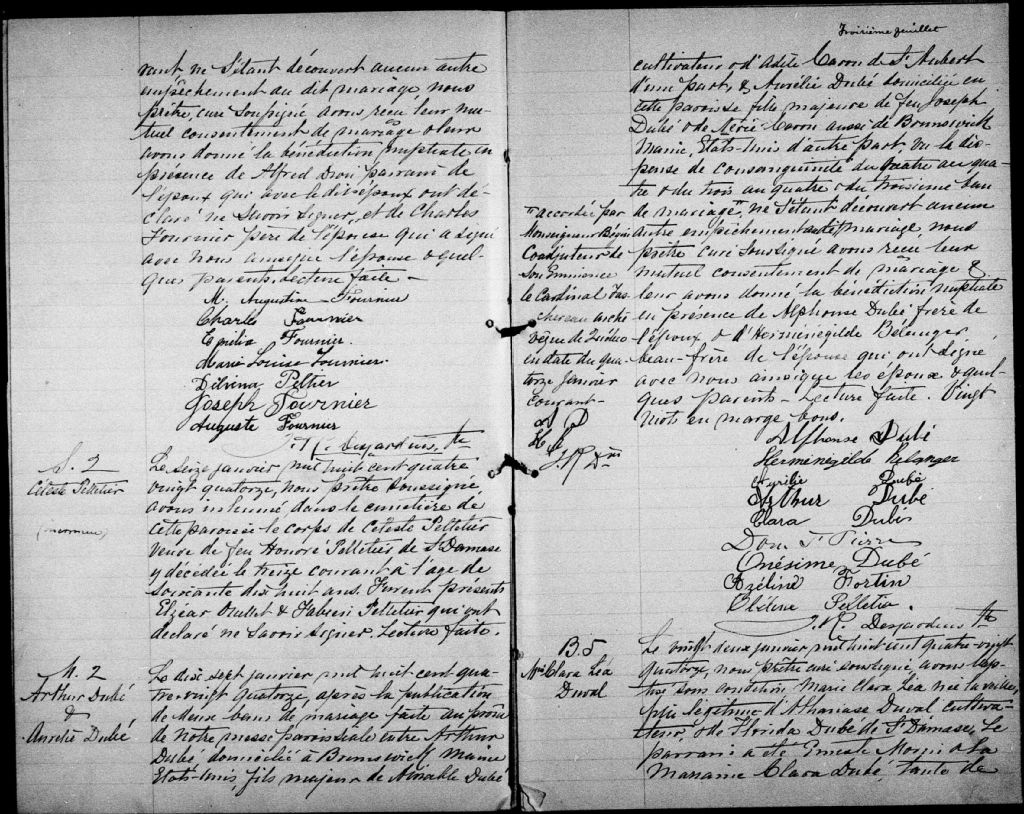 vant, ne s'étant découvert aucun autre
empêchement au dit mariage, nous
prêtre, curé soussigné avons reçu leur mu-
tuel consentement de mariage & leur
avons donné la bénédiction nuptiale en
présence de Alfred Dion parrain de
l'époux qui avec le dit époux ont dé-
claré ne savoir signer, et de Charles
Fournier père de l'épouse qui a signé
avec nous ainsi que l'épouse & quel-
ques parents. Lecture faite -
M. Augustine Fournier
Charles Fournier
Fournier.
Marie Louise Fournier.
Delvina Peltier
Joseph Fournier
Auguste Fournier
J. R. Desjardins, Ptre
S. 2
Céleste Pelletier
Le seize janvier, mil huit cent quatre
vingt quatorze, nous prêtre soussigné
avons inhumé dans le cimetière de
cette paroisse le corps de Céleste Pelletier
veuve de feu Honoré Pelletier de St Damase
y décédée le treize courant à l'age de
soixante dix huit ans. Furent présents
Elzéar Ouellet & Fabien Pelletier qui ont
declaré ne savoir signer. Lecture faite.
M. 2
Arthur Dubé
&
Aurélie Dubé
Le dix sept janvier mil huit cent qua-
tre-vingt quatorze, après la publication
de deux bans de mariage faite au prône
de notre messe paroissiale entre Arthur
Dubé, domicilié à Brunswick, Maine
Etats-Unis, fils majeur de Aimable Dubé
Troisième feuillet
cultivateur & d'Adèle Caron de St Aubert
d'une part, & Aurélie Dubé domiciliée en
cette paroisse fille majeure de feu Joseph
Dubé & de Caron aussi de Brunswick
Maine, Etats-Unis d'autre part, vu la dis-
pense de consanguinité du quatre au qua-
tre & du trois au quatre & du troisième ban
de mariage, ne s'étant découvert aucun
autre empêchement au dit mariage, nous
prêtre curé soussigné avons reçu leur
mutuel consentement de mariage &
leur avons donné la bénédiction nuptiale
en présence de Alphonse Dubé frère de
l'époux & d'Herménégilde Bélanger
beau-frère de l'épouse qui ont signé
avec nous ainsi que les époux & quel-
ques parents - Lecture faite. Vingt
mots en marge bons.
"accordée par
Monseigneur Bégin
Coadjuteur de
Son Eminence
le Cardinal Tas-
chereau arche
vêque de Québec
en date du qua-
torze janvier
courant -
A D
H B
J. R. D
Alphonse Dubé
Herménégilde Belanger
Aurélie Dubé
Arthur Dubé
Clara Dubé
Dom. St Pierre
Onésime Dubé
Azéline Fortin
Pelletier.
J. R. Desjardins Ptre
B. 5
Mie Clara Léa
Duval
Le vingt deux janvier, mil huit cent quatre-vingt
quatorze, nous prêtre curé soussigné, avons bap-
tisé sous condition Marie Clara Léa née la veille,
fille légitime d'Athanase Duval cultiva-
teur, & de Florida Dubé de St Damase. Le
parrain a été Ernest Morin & la
Marraine Clara Dubé, tante de